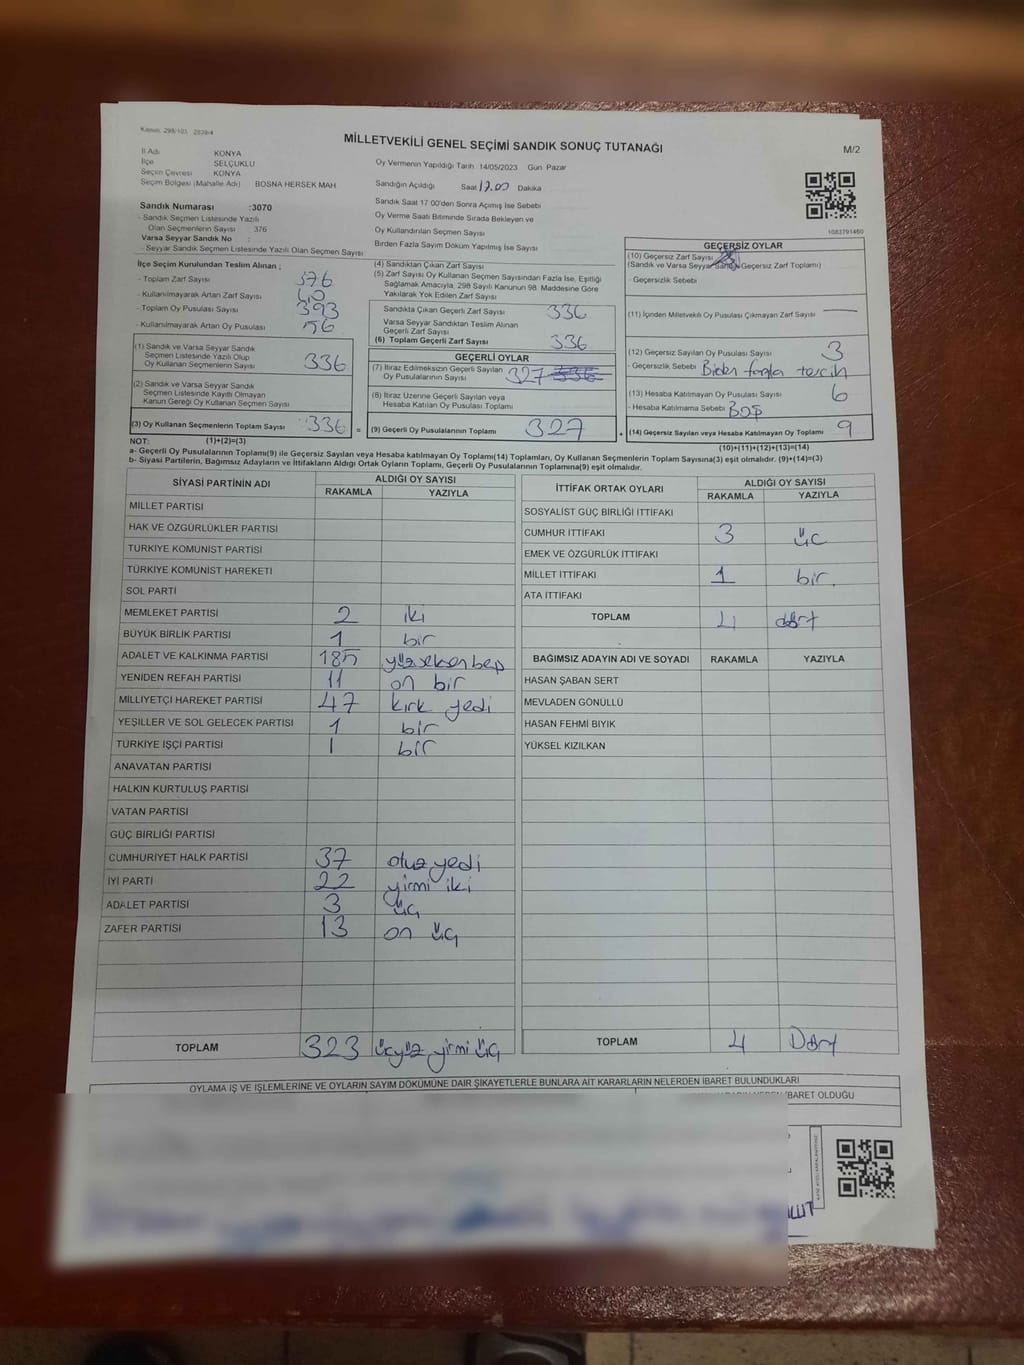 Kanun: 298/103 2839/4
MİLLETVEKİLİ GENEL SEÇİMİ SANDIK SONUÇ TUTANAĞI
M/2
İl Adı KONYA
İlçe SELÇUKLU
Seçim Çevresi KONYA
Seçim Bölgesi (Mahalle Adı) BOSNA HERSEK MAH
Oy Vermenin Yapıldığı Tarih 14/05/2023 Gün Pazar
Sandığın Açıldığı Saat 17.00 Dakika
Sandık Saat 17:00'den Sonra Açımış İse Sebebi
Oy Verme Saati Bitiminde Sırada Bekleyen ve
Oy Kullandırılan Seçmen Sayısı
Birden Fazla Sayım Döküm Yapılmış İse Sayısı
1083791460
Sandık Numarası :3070
- Sandık Seçmen Listesinde Yazılı
Olan Seçmenlerin Sayısı : 376
Varsa Seyyar Sandık No :
- Seyyar Sandık Seçmen Listesinde Yazılı Olan Seçmen Sayısı
İlçe Seçim Kurulundan Teslim Alınan ;
- Toplam Zarf Sayısı 376
- Kullanılmayarak Artan Zarf Sayısı 40
- Toplam Oy Pusulası Sayısı 393
- Kullanılmayarak Artan Oy Pusulası 56
(1) Sandık ve Varsa Seyyar Sandık
Seçmen Listesinde Yazılı Olup
Oy Kullanan Seçmenlerin Sayısı 336
(2) Sandık ve Varsa Seyyar Sandık
Seçmen Listesinde Kayıtlı Olmayan
Kanun Gereği Oy Kullanan Seçmen Sayısı
(3) Oy Kullanan Seçmenlerin Toplam Sayısı 336 =
(4) Sandıktan Çıkan Zarf Sayısı
(5) Zarf Sayısı Oy Kullanan Seçmen Sayısından Fazla İse, Eşitliği
Sağlamak Amacıyla, 298 Sayılı Kanunun 98. Maddesine Göre
Yakılarak Yok Edilen Zarf Sayısı
Sandıkta Çıkan Geçerli Zarf Sayısı 336
Varsa Seyyar Sandıktan Teslim Alınan
Geçerli Zarf Sayısı
(6) Toplam Geçerli Zarf Sayısı 336
GEÇERLİ OYLAR
(7) İtiraz Edilmeksizin Geçerli Sayılan
Oy Pusulalarının Sayısı 327 336
(8) İtiraz Üzerine Geçerli Sayılan veya
Hesaba Katılan Oy Pusulası Toplamı
(9) Geçerli Oy Pusulalarının Toplamı 327 +
GEÇERSİZ OYLAR
(10) Geçersiz Zarf Sayısı
(Sandık ve Varsa Seyyar Sandık Geçersiz Zarf Toplamı)
- Geçersizlik Sebebi
(11) İçinden Milletvekili Oy Pusulası Çıkmayan Zarf Sayısı —
(12) Geçersiz Sayılan Oy Pusulası Sayısı 3
- Geçersizlik Sebebi Birden fazla tercih
(13) Hesaba Katılmayan Oy Pusulası Sayısı 6
- Hesaba Katılmama Sebebi Boş
(14) Geçersiz Sayılan veya Hesaba Katılmayan Oy Toplamı 9
NOT: (1)+(2)=(3)
(10)+(11)+(12)+(13)=(14)
a- Geçerli Oy Pusulalarının Toplamı(9) ile Geçersiz Sayılan veya Hesaba Katılmayan Oy Toplamı(14) Toplamları, Oy Kullanan Seçmenlerin Toplam Sayısına(3) eşit olmalıdır. (9)+(14)=(3)
b- Siyasi Partilerin, Bağımsız Adayların ve İttifakların Aldığı Ortak Oyların Toplamı, Geçerli Oy Pusulalarının Toplamına(9) eşit olmalıdır.
SİYASİ PARTİNİN ADI
ALDIĞI OY SAYISI
RAKAMLA YAZIYLA
MİLLET PARTİSİ
HAK VE ÖZGÜRLÜKLER PARTİSİ
TÜRKİYE KOMÜNİST PARTİSİ
TÜRKİYE KOMÜNİST HAREKETİ
SOL PARTİ
MEMLEKET PARTİSİ 2 iki
BÜYÜK BİRLİK PARTİSİ 1 bir
ADALET VE KALKINMA PARTİSİ 185 yüzseksenbeş
YENİDEN REFAH PARTİSİ 11 on bir
MİLLİYETÇİ HAREKET PARTİSİ 47 kırk yedi
YEŞİLLER VE SOL GELECEK PARTİSİ 1 bir
TÜRKİYE İŞÇİ PARTİSİ 1 bir
ANAVATAN PARTİSİ
HALKIN KURTULUŞ PARTİSİ
VATAN PARTİSİ
GÜÇ BİRLİĞİ PARTİSİ
CUMHURİYET HALK PARTİSİ 37 otuz yedi
İYİ PARTİ 22 yirmi iki
ADALET PARTİSİ 3 üç
ZAFER PARTİSİ 13 on üç
TOPLAM 323 üçyüz yirmi üç
İTTİFAK ORTAK OYLARI
ALDIĞI OY SAYISI
RAKAMLA YAZIYLA
SOSYALİST GÜÇ BİRLİĞİ İTTİFAKI
CUMHUR İTTİFAKI 3 üc
EMEK VE ÖZGÜRLÜK İTTİFAKI
MİLLET İTTİFAKI 1 bir.
ATA İTTİFAKI
TOPLAM 4 dört
BAĞIMSIZ ADAYIN ADI VE SOYADI RAKAMLA YAZIYLA
HASAN ŞABAN SERT
MEVLADEN GÖNÜLLÜ
HASAN FEHMİ BIYIK
YÜKSEL KIZILKAN
TOPLAM 4 Dört
OYLAMA İŞ VE İŞLEMLERİNE VE OYLARIN SAYIM DÖKÜMÜNE DAİR ŞİKAYETLERLE BUNLARA AİT KARARLARIN NELERDEN İBARET BULUNDUKLARI
İBARET OLDUĞU